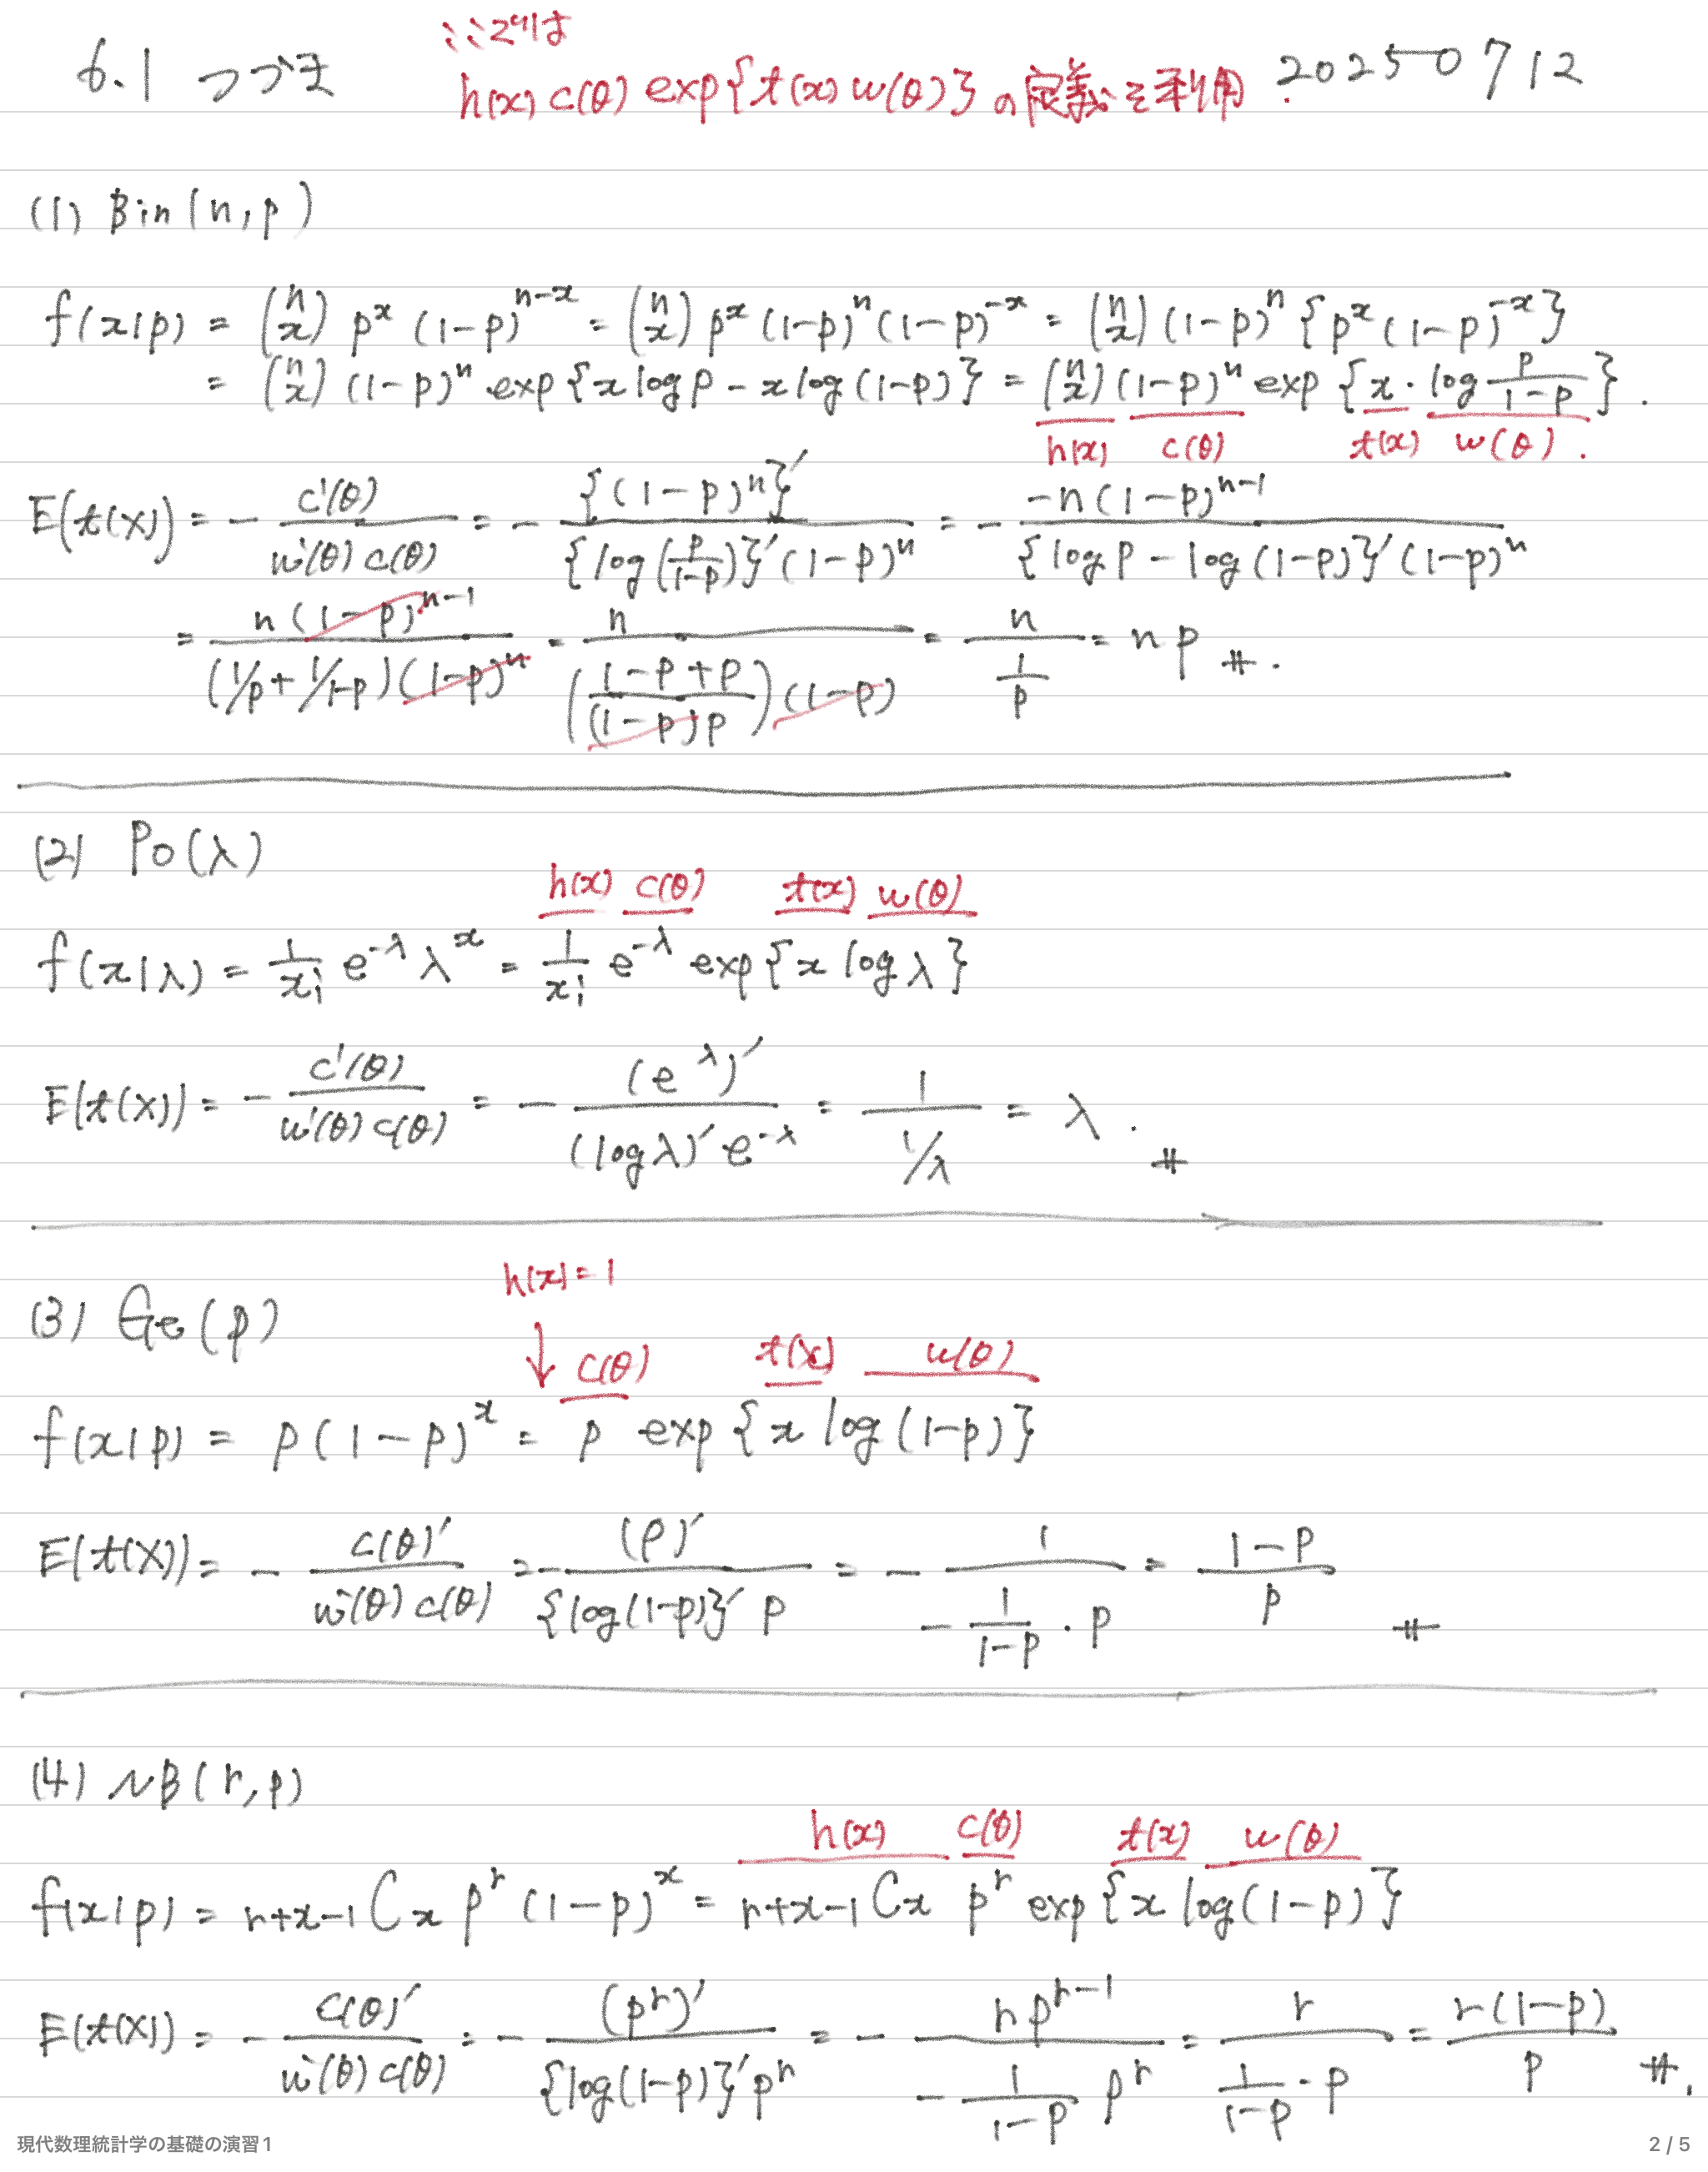 6.1 つづき
ここでは
h(x) c(θ) exp{t(x) w(θ)} の定義を利用.
20250712
(1) Bin(n,p)
f(x|p) = (n x) p^x (1-p)^{n-x} = (n x) p^x (1-p)^n (1-p)^{-x} = (n x) (1-p)^n {p^x (1-p)^{-x}}
= (n x) (1-p)^n exp{x log p - x log(1-p)} = (n x) (1-p)^n exp{x · log p/(1-p)}.
h(x) c(θ) t(x) w(θ).
E(t(X)) = - c'(θ) / w'(θ) c(θ) = - {(1-p)^n}' / {log(p/(1-p))}' (1-p)^n = - -n(1-p)^{n-1} / {log p - log(1-p)}' (1-p)^n
= n(1-p)^{n-1} / (1/p + 1/1-p)(1-p)^n = n / ((1-p+p)/((1-p)p))(1-p) = n / (1/p) = np #.
(2) Po(λ)
h(x) c(θ) t(x) w(θ)
f(x|λ) = 1/x! e^{-λ} λ^x = 1/x! e^{-λ} exp{x log λ}
E(t(X)) = - c'(θ) / w'(θ) c(θ) = - (e^λ)' / (log λ)' e^{-λ} = 1 / (1/λ) = λ. #
(3) Ge(p)
h(x) = 1
↓ c(θ) t(x) w(θ)
f(x|p) = p(1-p)^x = p exp{x log(1-p)}
E(t(X)) = - c(θ)' / w'(θ) c(θ) = - (p)' / {log(1-p)}' p = - 1 / (- 1/(1-p) · p) = (1-p)/p #
(4) NB(r,p)
h(x) c(θ) t(x) w(θ)
f(x|p) = r+x-1 C x p^r (1-p)^x = r+x-1 C x p^r exp{x log(1-p)}
E(t(X)) = - c(θ)' / w'(θ) c(θ) = - (p^r)' / {log(1-p)}' p^r = - r p^{r-1} / (- 1/(1-p) p^r) = r / (1/(1-p) · p) = r(1-p)/p #.
現代数理統計学の基礎の演習1
2 / 5